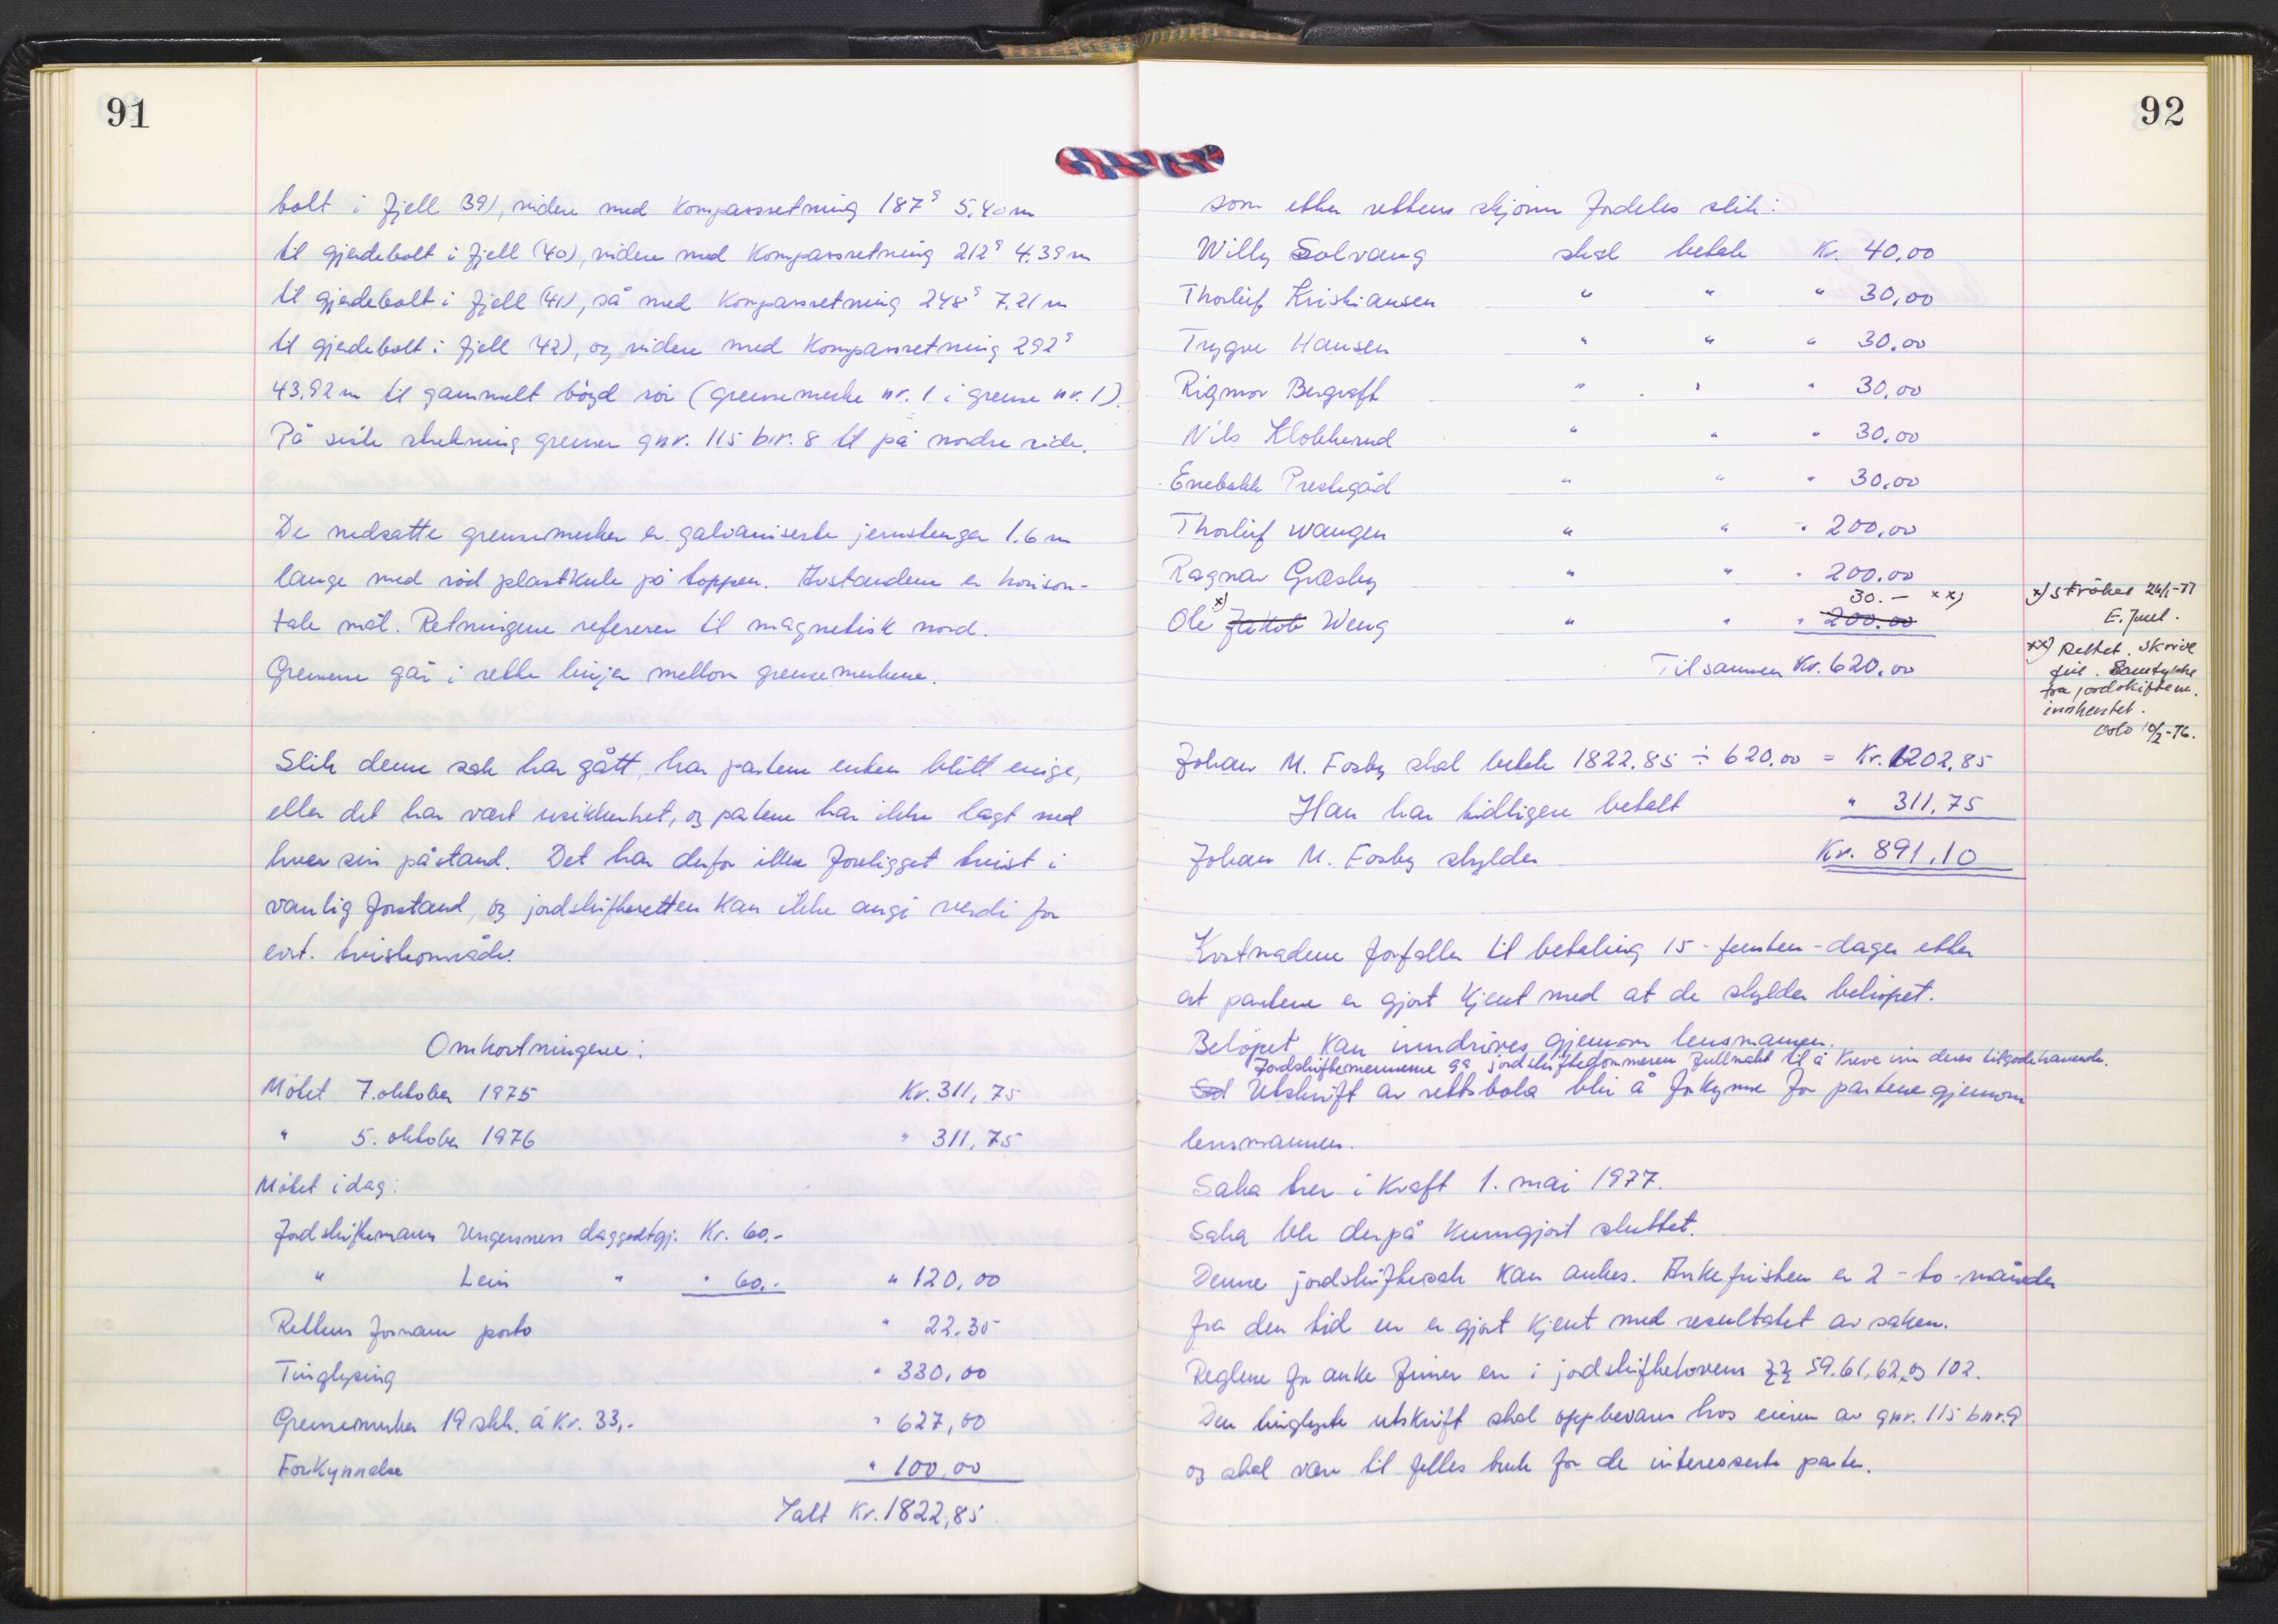 91
bolt i fjell (39), videre med kompassretning 187g 5,40 m
til gjerdebolt i fjell (40), videre med kompassretning 212g 4.39 m
til gjerdebolt i fjell (41), så med kompassretning 248g 7.21 m
til gjerdebolt i fjell (42), og videre med kompassretning 292g
43,92 m til gammelt bøyd rør (grensemerke nr. 1 i grense nr. 1).
På siste strekning grenser gnr. 115 bnr. 8 til på nordre side.
De nedsatte grensemerker er galvaniserte jernstenger 1.6 m
lange med rød plastkule på toppen. Avstandene er horison-
tale mål. Retningene refererer til magnetisk nord.
Grensene går i rette linjer mellom grensemerkene.
Slik denne sak har gått, har partene enten blitt enige,
eller det har vært usikkerhet, og partene har ikke lagt ned
hver sin påstand. Det har derfor ikke foreligget tvist i
vanlig forstand, og jordskifteretten kan ikke angi verdi for
evt. tvisteområde.
Omkostningene:
Møtet 7. oktober 1975 Kr. 311,75
" 5. oktober 1976 " 311,75
Møtet i dag:
Jordskiftemann Ungersness daggodtgj. Kr. 60,-
" Lein " " 60,- " 120,00
Rettens formann porto " 22.35
Tinglysing " 330,00
Grensemerker 19 stk. á kr. 33,- " 627,00
Forkynnelse " 100,00
Ialt kr. 1822,85
92
som etter rettens skjønn fordeles slik:
Willy Solvang skal betale Kr. 40,00
Thorleif Kristiansen " " " 30,00
Trygve Hansen " " " 30,00
Rigmor Bergraft " " " 30,00
Nils Klokkerud " " " 30,00
Enebakk Prestegård " " " 30,00
Thorleif Wangen " " " 200,00
Ragnar Græsby " " " 200,00
30.- xx)
Ole x) Jakob Weng " " " 200.00
Tilsammen Kr. 620,00
x) Strøket 26/1-77
E. Juel.
xx) Rettet. Skrive
feil. Samtykke
fra jordskiftem.
innhentet.
Oslo 10/2-76.
Johan M. Fosby skal betale 1822,85 ÷ 620,00 = Kr. 1202,85
Han har tidligere betalt " 311,75
Johan M. Fosby skylder Kr. 891,10
Kostnadene forfaller til betaling 15 - femten - dager etter
at partene er gjort kjent med at de skylder beløpet.
Beløpet kan inndrives gjennom lensmannen.
Jordskiftemennene ga jordskiftedommeren fullmakt til å kreve inn deres tilgodehavende.
Utskrift av rettsboka blir å forkynne for partene gjennom
lensmannen.
Saka trer i kraft 1. mai 1977.
Saka ble derpå kunngjort sluttet.
Denne jordskiftesak kan ankes. Ankefristen er 2 - to - måneder
fra den tid en er gjort kjent med resultatet av saken.
Reglene for anke finner en i jordskiftelovens §§ 59.61,62 og 102.
Den tinglyste utskrift skal oppbevares hos eieren av gnr. 115 bnr. 9
og skal være til felles bruk for de interesserte parter.